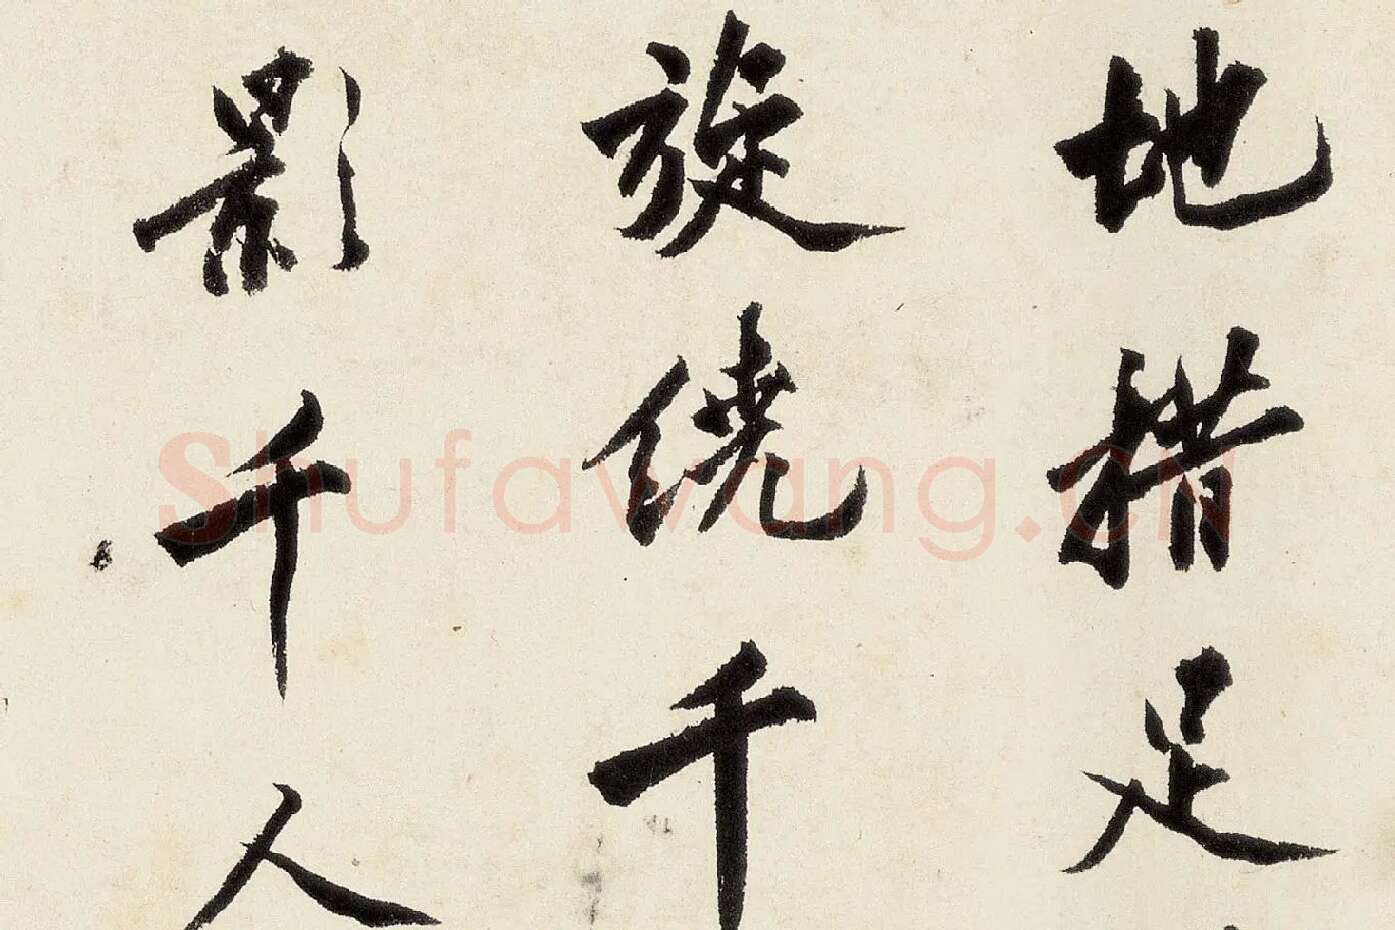 地措足
旋繞千
影千人
Shufawang.cN